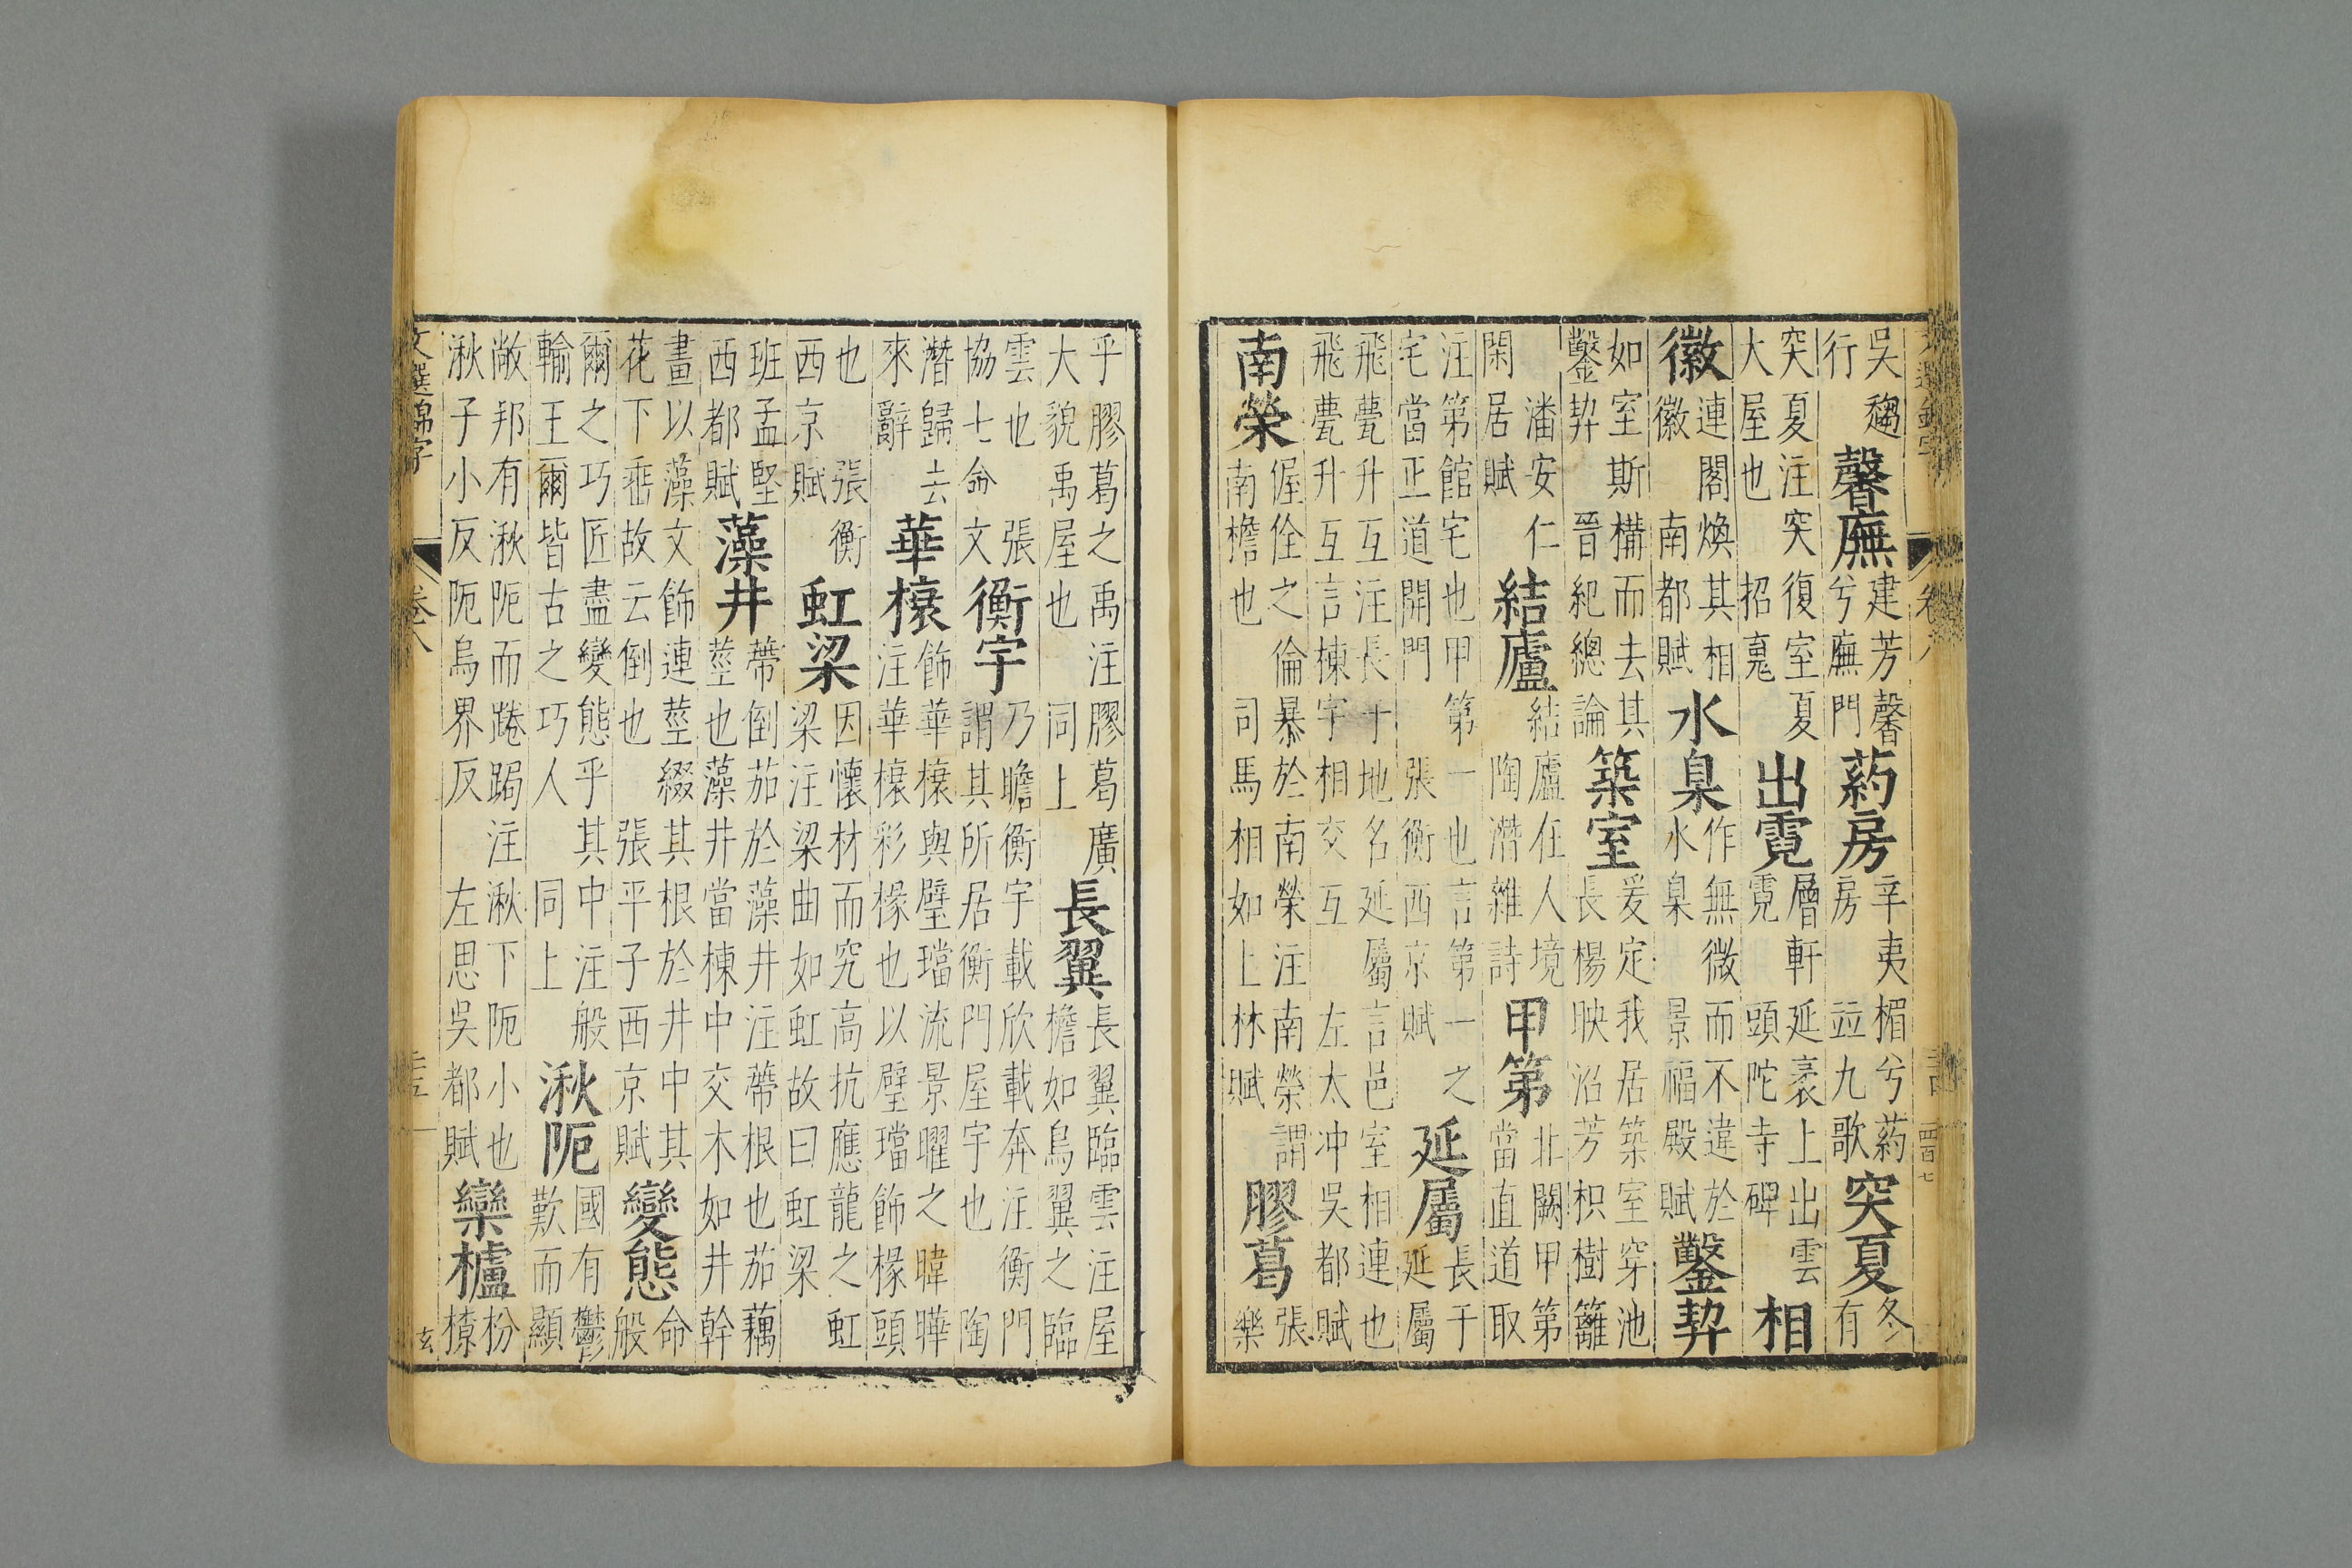 吳趨行 馨廡 建芳馨兮廡門 葯房 辛夷楣兮葯房 並九歌 突夏 冬有
突夏注突復室夏大屋也 招䰟 出霓 層軒延袤上出雲霓 頭陀寺碑 相
徽 連閣煥其相徽 南都賦 水臬 作無微而不違於水臬 景福殿賦 鑿契
如室斯構而去其鑿契 晉紀總論 築室 爰定我居築室穿池長楊映沼芳枳樹籬
潘安仁閑居賦 結廬 結廬在人境 陶潛雜詩 甲第 北闕甲第當直道取
注第館宅也甲第一也言第一之宅當正道開門 張衡西京賦 延屬 長于延屬
飛甍升互注長于地名延屬言邑室相連也飛甍升互言棟宇相交互 左太冲吳都賦
南榮 偓佺之倫暴於南榮注南榮謂南檐也 司馬相如上林賦 膠葛 張樂
乎膠葛之禹注膠葛廣大貌禹屋也 同上 長翼 長翼臨雲注屋檐如鳥翼之臨
雲也 張協七命文 衡宇 乃瞻衡宇載欣載奔注衡門謂其所居衡門屋宇也 陶
潛歸去來辭 華榱 飾華榱與璧璫流景曜之暐曄注華榱彩椽也以璧璫飾椽頭
也 張衡西京賦 虹梁 因懷材而究高抗應龍之虹梁注梁曲如虹故曰虹梁
班孟堅西都賦 藻井 蔕倒茄於藻井注蔕根也茄藕莖也藻井當棟中交木如井幹
畫以藻文飾連莖綴其根於井中其花下垂故云倒也 張平子西京賦 變態 命般
爾之巧匠盡變態乎其中注般輸王爾皆古之巧人 同上 湫阨 國有鬱歎而顯
敞邦有湫阨而踡跼注湫下阨小也湫子小反阨烏界反 左思吳都賦 欒櫨 枌橑
文選錦字 卷八 玄